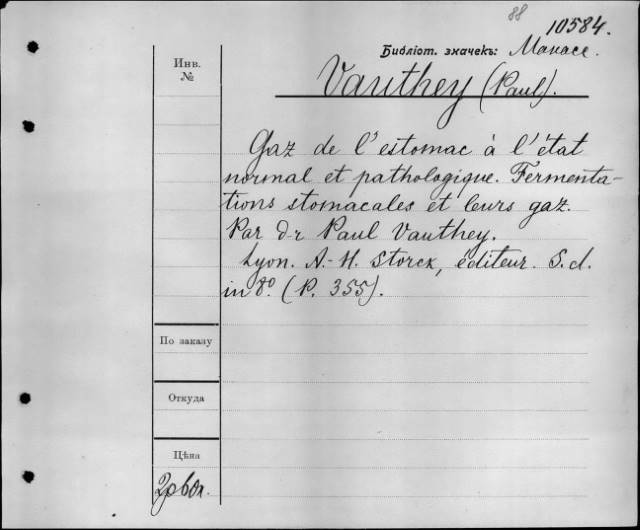 88
10584.
Библіот. значекъ: Манасе.
Инв.
№
Vauthey (Paul).
Gaz de l'estomac à l'état
normal et pathologique. Fermenta-
tions stomacales et leurs gaz.
Par d-r Paul Vauthey.
Lyon. A.-H. Storck, éditeur. S.d.
in 8º. (P. 355).
По заказу
Откуда
Цѣна
2р60к.